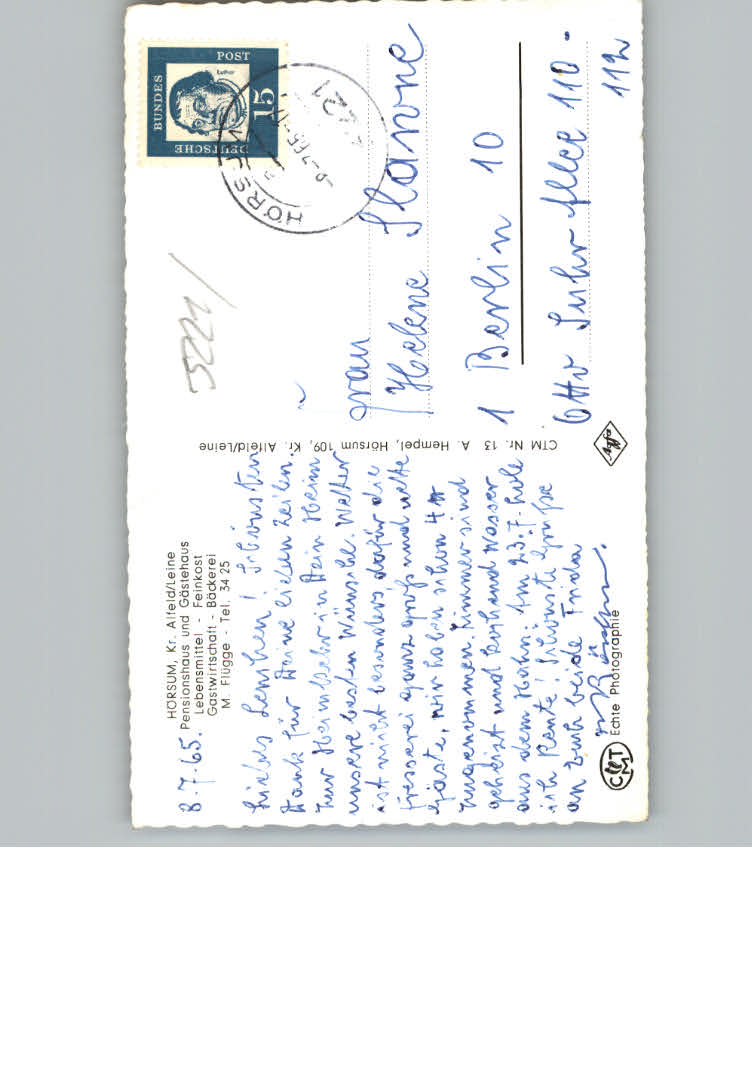 HÖRSUM, Kr. Alfeld/Leine
Pensionshaus und Gästehaus
Lebensmittel - Feinkost
Gastwirtschaft - Bäckerei
M. Flügge - Tel. 34 25
8.7.65.
Liebes Lenchen! Schönsten
Dank für Deine lieben Zeilen.
Zur Heimkehr in Dein Heim
unsere besten Wünsche. Wetter
ist nicht besonders, dafür die
Fresserei ganz groß und nette
Gäste, wir haben schon 4 ℔
zugenommen. Zimmer sind
geheizt und kochend Wasser
aus dem Hahn. Am 23.7. hole
ich Rente! Schönste Grüße
an Euch beide Frieda
Echte Photographie
CTM Nr. 13 A. Hempel, Hörsum 109, Kr. Alfeld/Leine
Agfa
DEUTSCHE
BUNDES
POST
Luther
15
HÖRSUM
-7.65-17
3221
Frau
Helene
1 Berlin 10
Otto Suhr Allee 110-
112